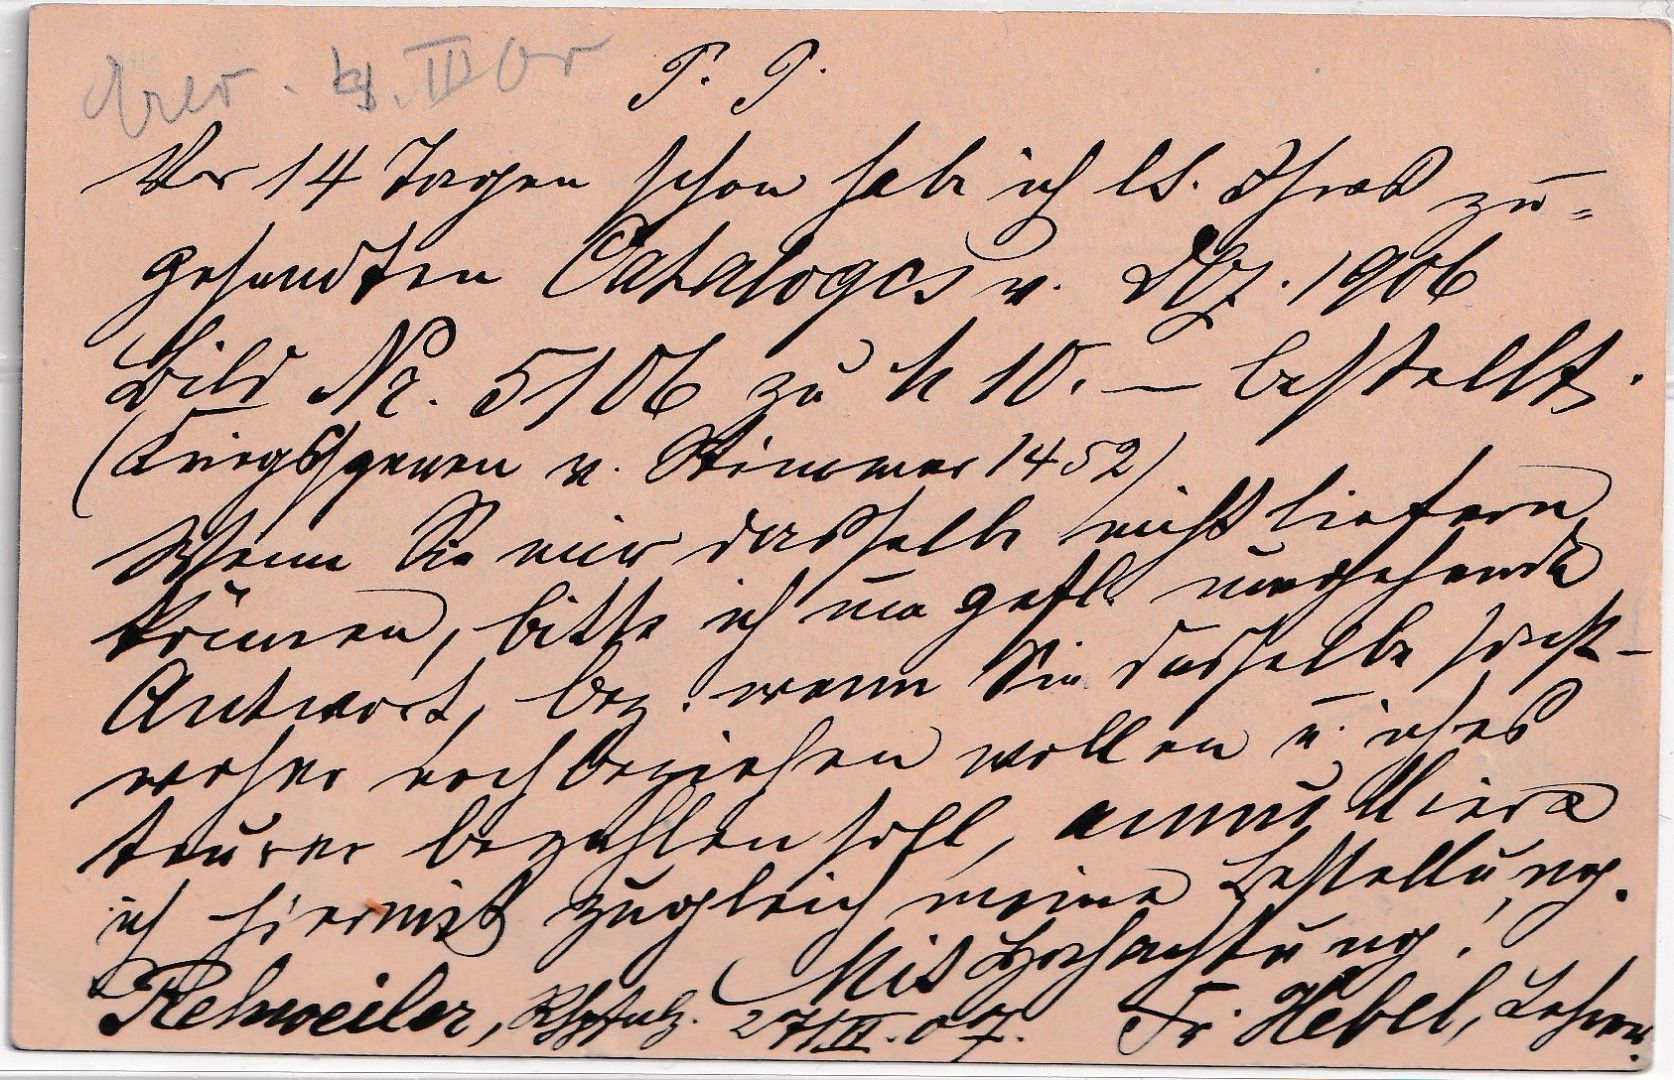 P. P.
Vor 14 Tagen schon habe ich lt. Ihres zu=
gesandten Cataloges v. Dez. 1906
Bild Nr. 5106 zu M 10.— bestellt.
(Kriegsscenen v. Stimmer 1452)
Wenn Sie mir dasselbe nicht liefern
können, bitte ich um gefl. umgehende
Antwort, bez. wenn Sie dasselbe sonst-
woher noch beziehen wollen u. ich es
teurer bezahlen soll, annulliere
ich hiermit zugleich meine Bestellung.
Mit Hochachtung!
Rehweiler, Rhpfalz. 27/II.07. Fr. Hebel, Lehrer.